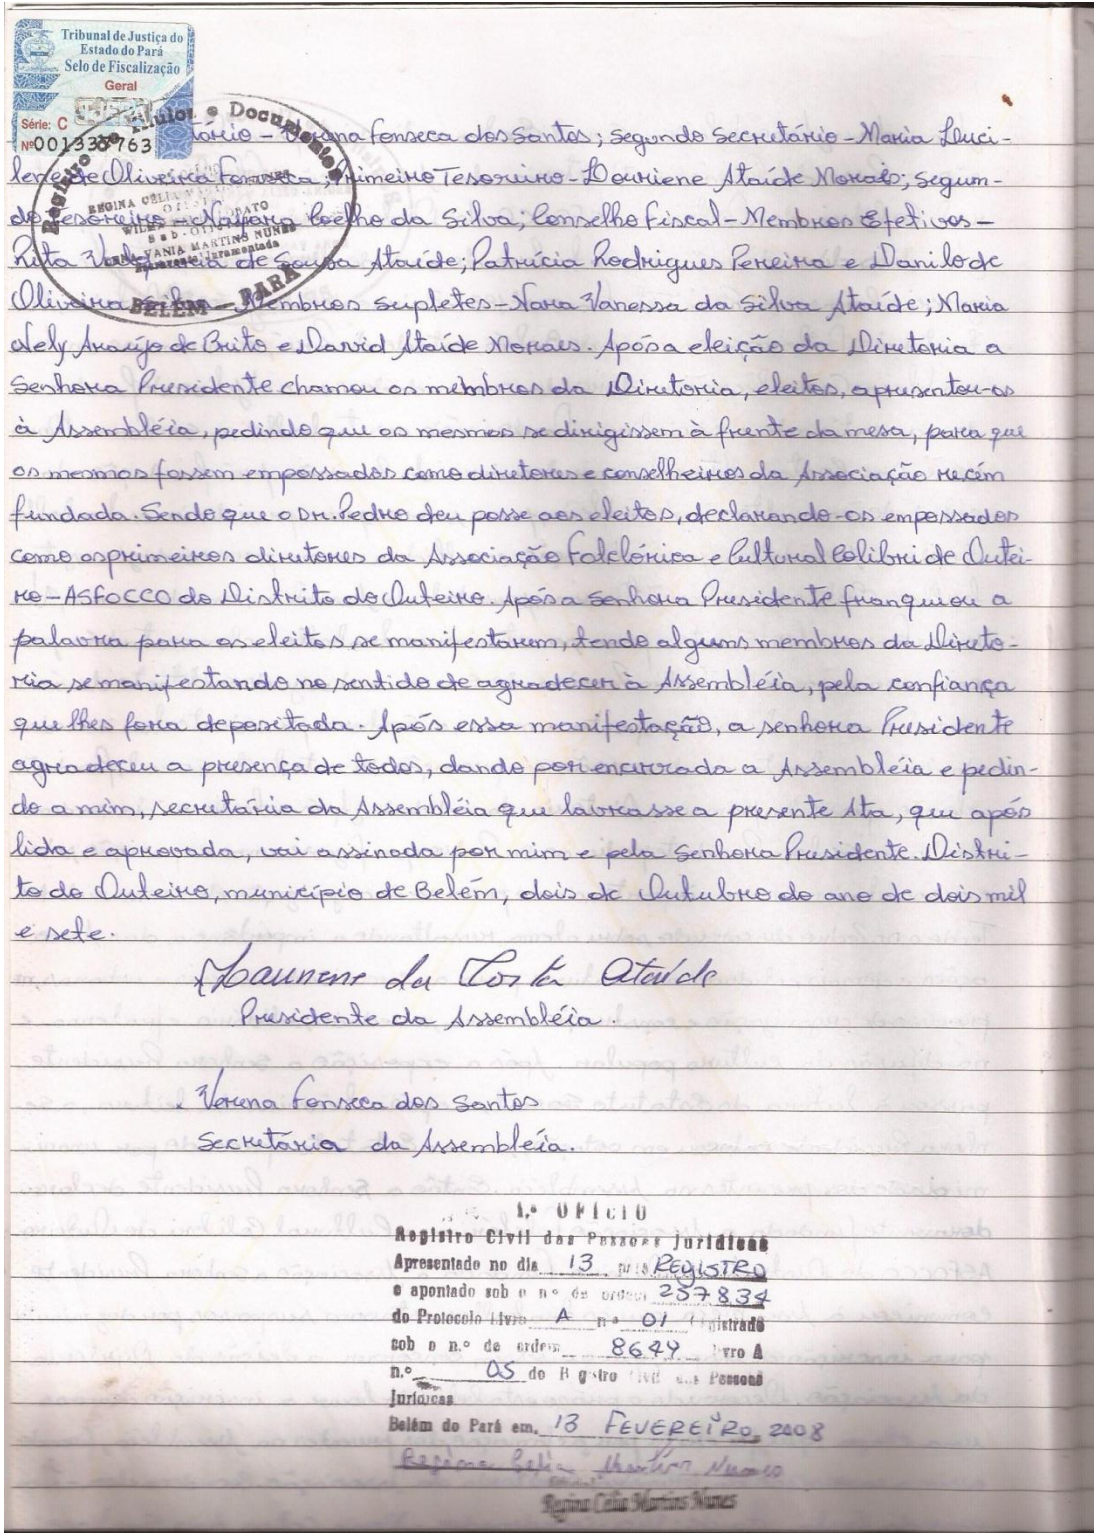 Tribunal de Justiça do
Estado do Pará
Selo de Fiscalização
Geral
Série: C
Nº001337763
Registro de Titulos e Documentos
BELÉM - PARÁ
tário - Verena Fonseca dos Santos; segundo secretário - Maria Luci-
lene de Oliveira Fonseca; Primeiro Tesoureiro - Louriene Ataíde Morais; segun-
do tesoureiro - Naiara Coêlho da Silva; Conselho Fiscal - Membros Efetivos -
Rita de Sousa Ataíde; Patrícia Rodrigues Pereira e Danilo de
Oliveira Silva - Membros supletes - Nara Vanessa da Silva Ataíde; Maria
Nely Araújo de Brito e David Ataíde Moraes. Após a eleição da Diretoria a
Senhora Presidente chamou os membros da Diretoria, eleitos, apresentou-os
à Assembléia, pedindo que os mesmos se dirigissem à frente da mesa, para que
os mesmos fossem empossados como diretores e conselheiros da Associação recém
fundada. Sendo que o Dr. Pedro deu posse aos eleitos, declarando-os empossados
como os primeiros diretores da Associação Folclórica e Cultural Colibri de Outei-
ro - ASFOCCO do Distrito do Outeiro. Após a senhora Presidente franquiou a
palavra para os eleitos se manifestarem, tendo alguns membros da Direto-
ria se manifestando no sentido de agradecer à Assembléia, pela confiança
que lhes fora depositada. Após essa manifestação, a senhora Presidente
agradeceu a presença de todos, dando por encerrada a Assembléia e pedin-
do a mim, secretária da Assembléia que lavrasse a presente Ata, que após
lida e aprovada, vai assinada por mim e pela Senhora Presidente. Distri-
to do Outeiro, município de Belém, dois de Outubro do ano de dois mil
e sete.
Laurene da Costa Ataíde
Presidente da Assembléia.
Verena Fonseca dos Santos
Secretária da Assembléia.
1.º OFÍCIO
Registro Civil das Pessoas Jurídicas
Apresentado no dia 13 para REGISTRO
e apontado sob o nº de ordem 257834
do Protocolo Livro A nº 01 registrado
sob o n.º de ordem 8649 livro A
n.º 05 do Registro Civil das Pessoas
Jurídicas
Belém do Pará em, 13 FEVEREIRO, 2008
Regina Celia Martins Nunes
Regina Célia Martins Nunes